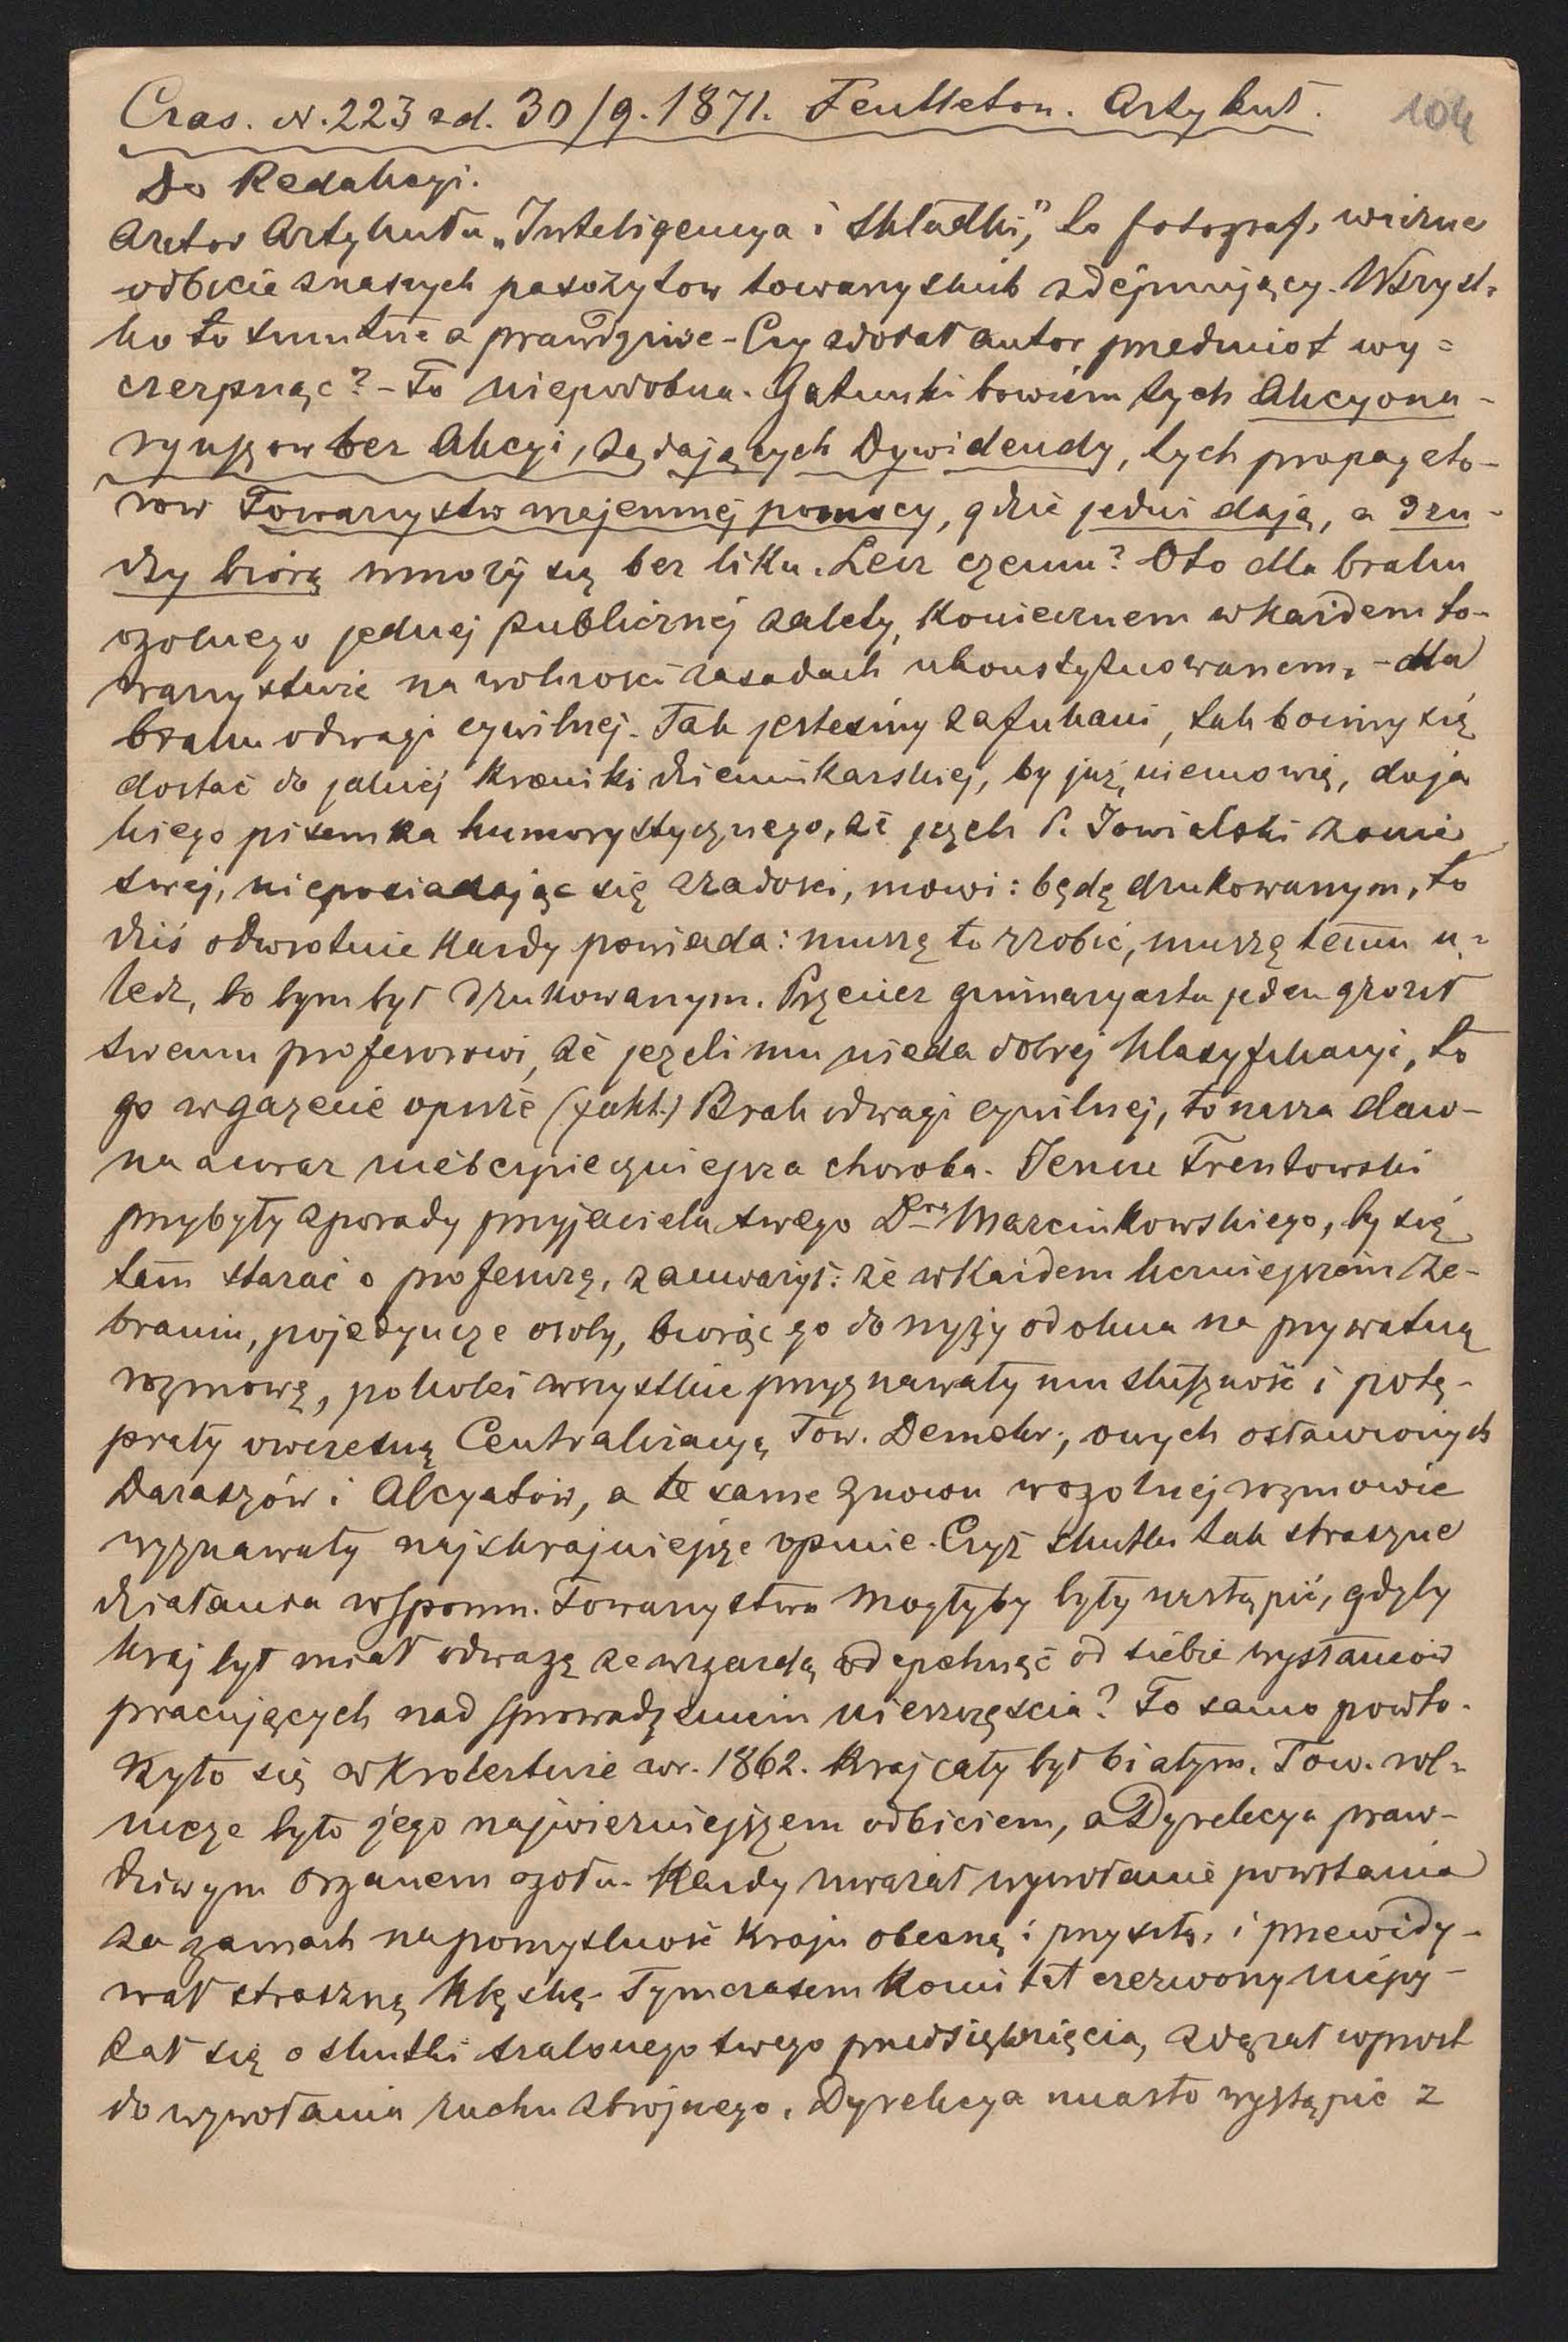 Czas. N. 223 z d. 30/9. 1871. Feulleton. Artykuł. 104
Do Redakcyi.
Autor Artykułu „Inteligencya i Składki," to fotograf, wierne
odbicie znaszych pasożytow towarzyskich zdejmujący. Wszyst-
ko to smutne a prawdziwe - Czy zdołał autor przedmiot wy=
czerpnąc? - To niepodobna. Gatunki bowiem tych Akcyona-
ryuszow bez Akcyi, żądających Dywidendy, tych propagato-
row Towarzystw wzajemnej pomocy, gdzie jedni dają, a dru-
dzy biorą mnoży się bez liku. Lecz czemu? Oto dla braku
ogolnego jednej publicznej zalety, koniecznem w każdem to-
warzystwie na wolności zasadach ukonstytuowanem, - dla
braku odwagi cywilnej. Tak jestesmy zafukani, tak boimy się
dostać do jakiej kroniki dziennikarskiej, by już, niemowię, do ja
kiego pisemka humorystycznego, że jezeli P. Jowialski żonie
swej, nieposiadając się zradości, mowi: będę drukowanym, to
dziś odwrotnie każdy powiada: muszę to zrobić, muszę temu u-
ledz, bo bym był drukowanym. Przeciez gimnazyasta jeden groził
swemu profesorowi, że jezeli mu nieda dobrej klasyfikacyi, to
go w gazecie opisze (fakt.) Brak odwagi cywilnej, to nasza daw-
na a coraz niebezpieczniejsza choroba. Jeszcze Trentowski
przybyły z porady przyjaciela swego Dra Marcinkowskiego, by się
tam starać o profesurę, zauważył: że w każdem liczniejszem ze-
braniu, pojedyncze osoby, biorąc go do nyży od okna na prywatną
rozmowę, pokolei wszystkie przyznawały mu słuszność i potę-
piały owczesną Centralizacyą Tow. Demokr., owych osławionych
Daraszów i Alcyatów, a te same znowu w ogolnej rozmowie
wyznawały najskrajniejsze opinie. Czyż skutki tak straszne
działania wspomn. Towarzystwa mogłyby były nastąpić, gdyby
kraj był miał odwagę ze wzgardą odepchnąć od siebie wysłańców
pracujących nad sprowadzeniem nieszczęścia? To samo powto-
rzyło się w Krolestwie w r. 1862. Kraj cały był białym. Tow. rol-
nicze było jego najwierniejszem odbiciem, a Dyrekcya praw-
dziwym organem ogołu. Każdy uważał wywołanie powstania
za zamach na pomyslność kraju obecną i przyszłą, i przewidy-
wał straszną klęskę. Tymczasem Komitet czerwony niepy-
tał się o skutki szalonego swego przedsięwzięcia, zdążał wprost
do wywołania ruchu zbrojnego. Dyrekcya miasto wystąpić z